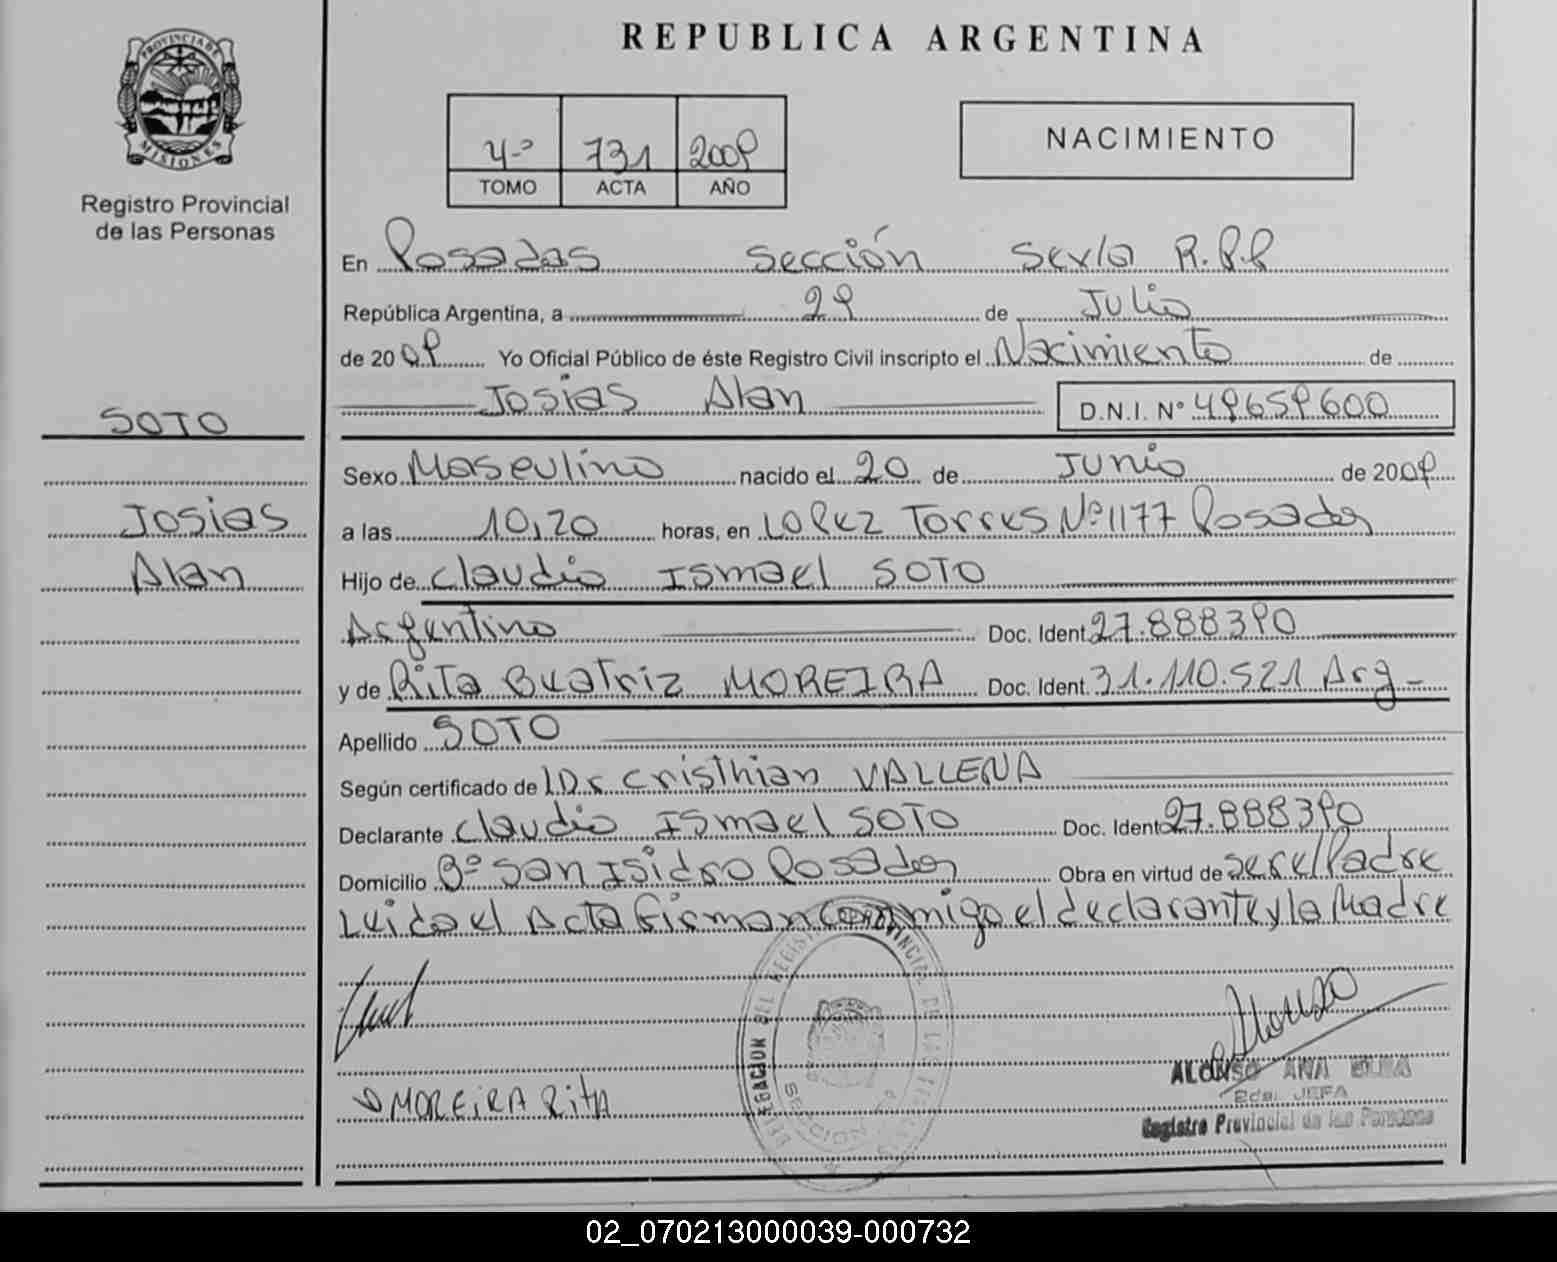 PROVINCIA DE
MISIONES
Registro Provincial
de las Personas
SOTO
Josias
Alan
REPUBLICA ARGENTINA
4º 731 2009
TOMO ACTA AÑO
NACIMIENTO
En Posadas Sección Sexta R.P.P
República Argentina, a 29 de Julio
de 2009 Yo Oficial Público de éste Registro Civil inscripto el Nacimiento de
Josias Alan D.N.I. Nº 49659600
Sexo Masculino nacido el 20 de Junio de 2009
a las 10,20 horas, en LOPEZ Torres Nº 1177 Posadas
Hijo de Claudio Ismael SOTO
Argentino Doc. Ident. 27.888390
y de Rita Beatriz MOREIRA Doc. Ident. 31.110.521 Arg-
Apellido SOTO
Según certificado de Dr Cristhian VALLENA
Declarante Claudio Ismael SOTO Doc. Ident 27.888390
Domicilio Bº San Isidro Posadas Obra en virtud de ser el Padre
Leida el Acta firman conmigo el declarante y la Madre
MOREIRA RitA
Alonso
ALONSO ANA ELBA
JEFA
Registro Provincial de las Personas
DELEGACION DEL REGISTRO PROVINCIAL DE LAS PERSONAS
SECCION 6ª
02_070213000039-000732